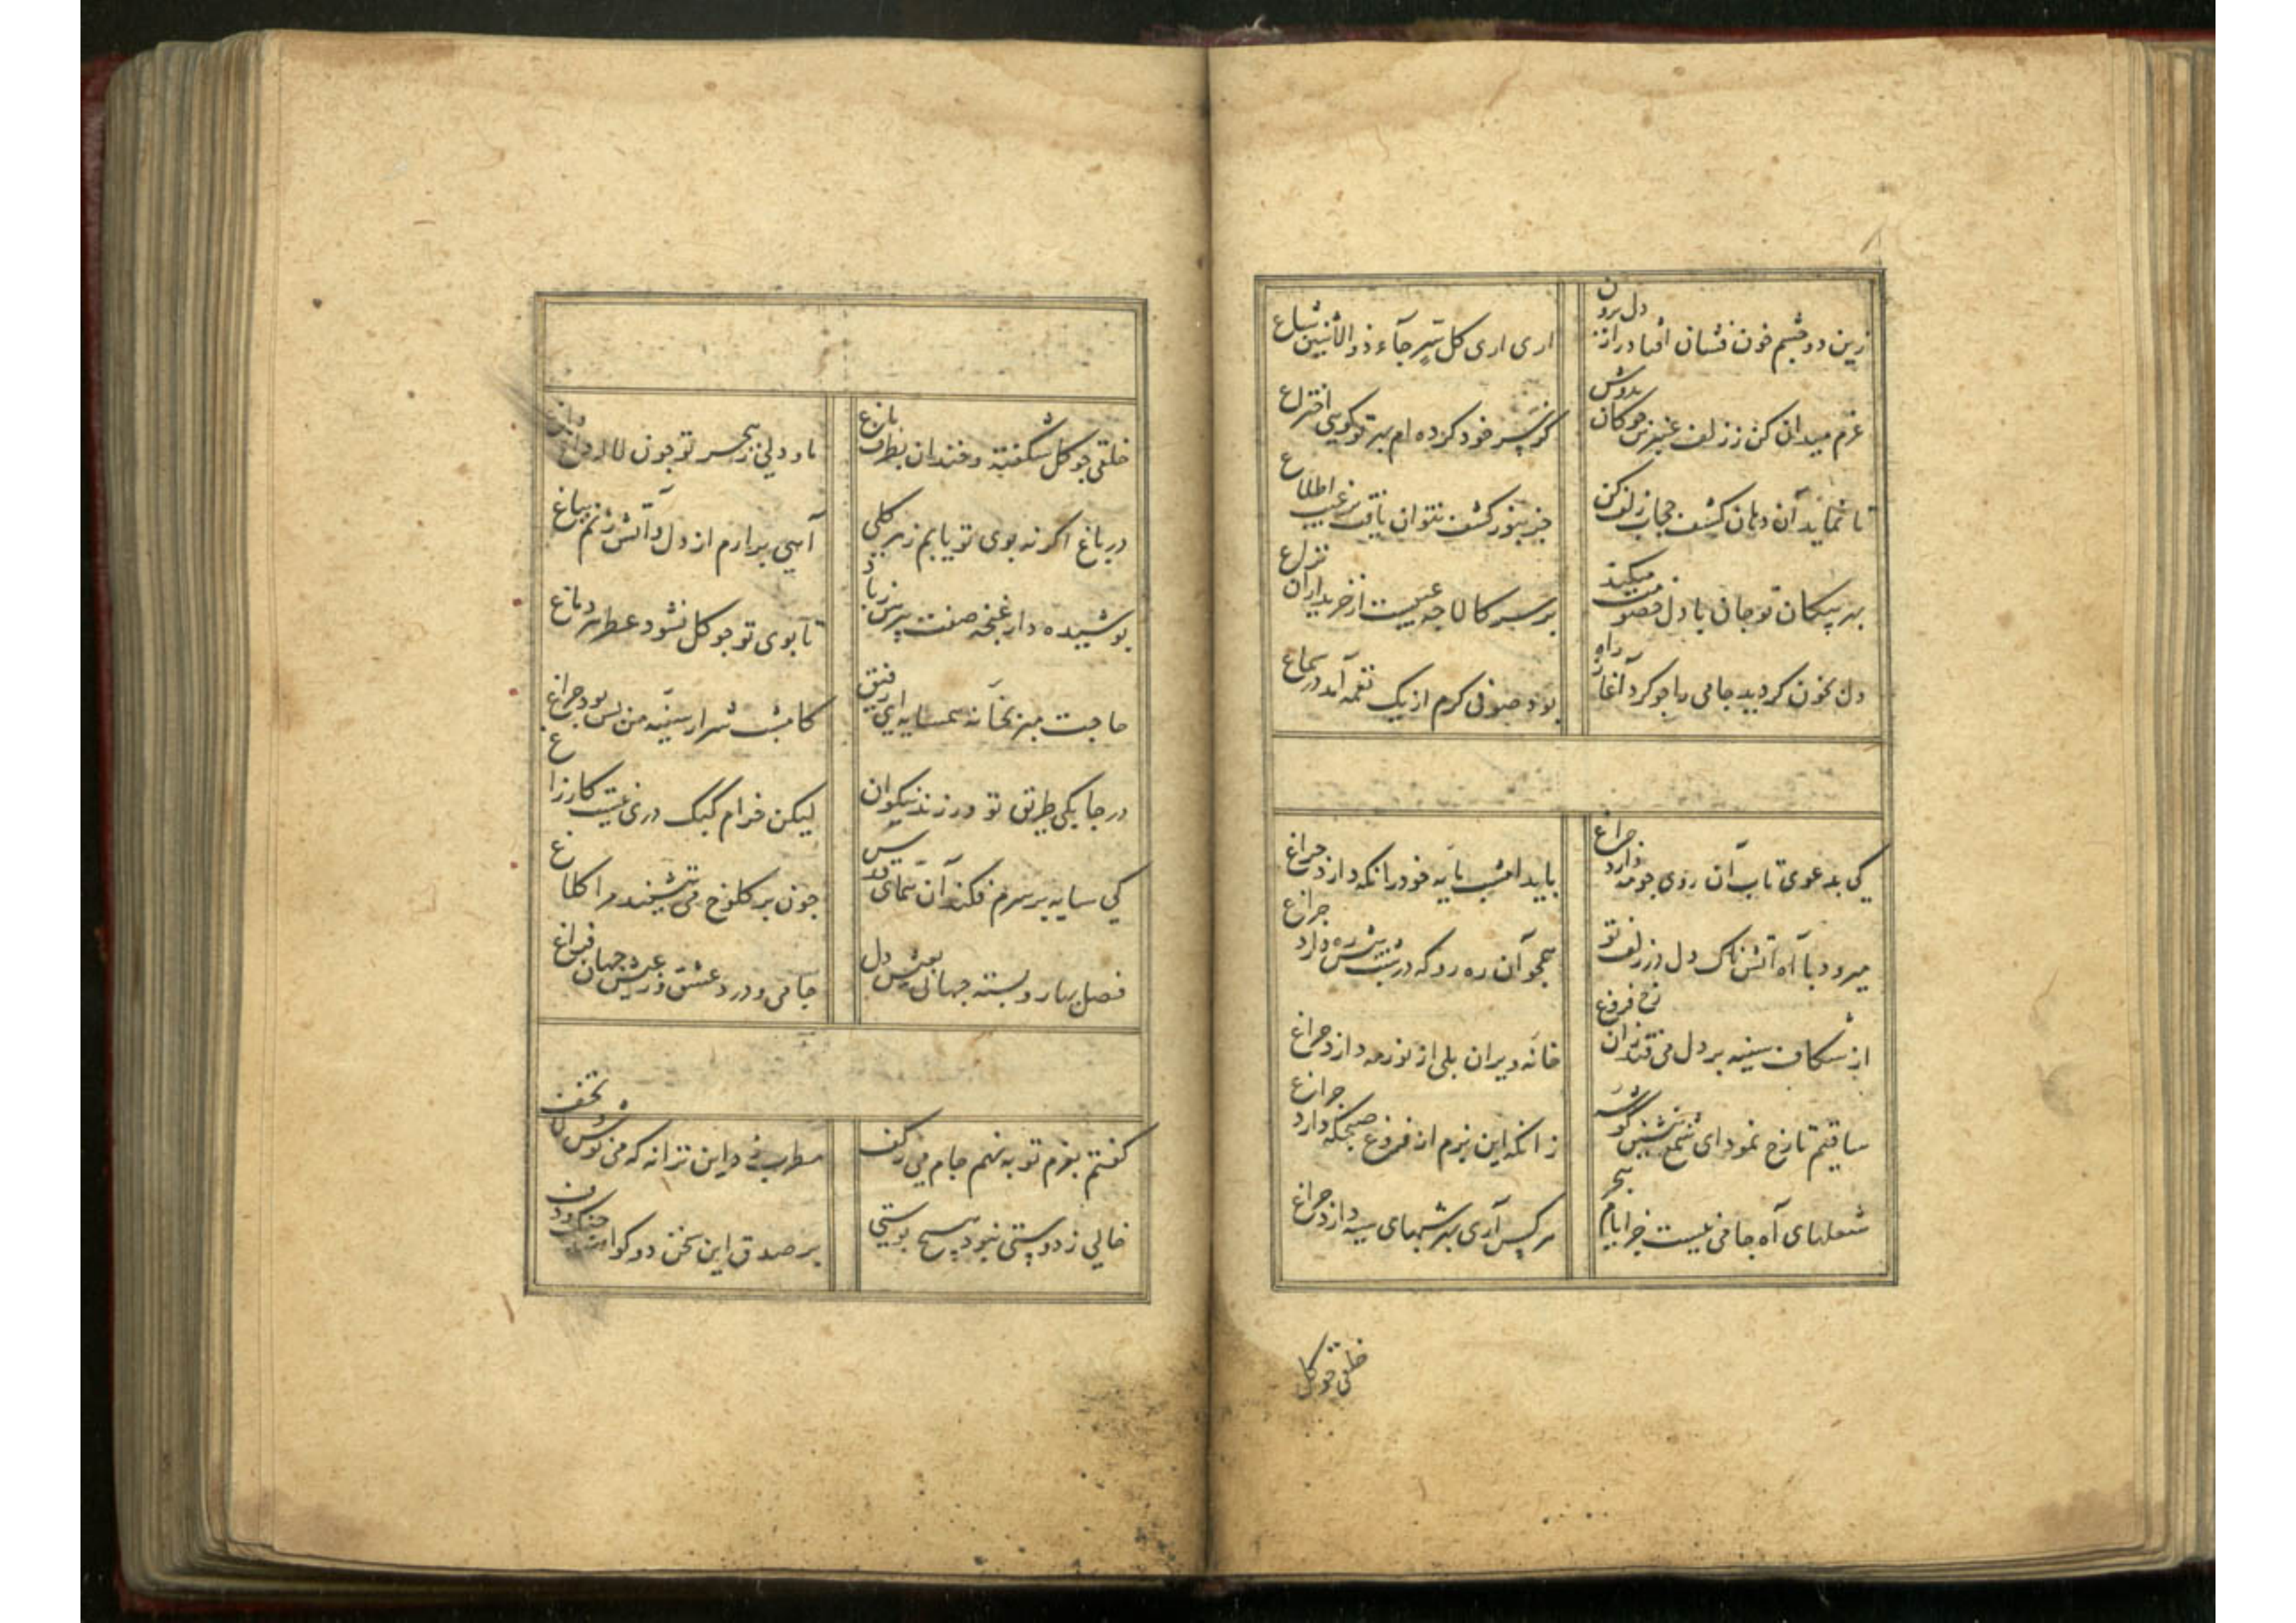 زین دو چشم خون فشان افتاد راز دل برون
اری اری کل سر جاء ذو الاثنین شاع
عزم میدان کن ز زلف عنبرین چوکان بدوش
کز سر خود کرده ام بهر تو کویی اختراع
تا نماید آن دهان کشف حجاب زلف کن
جز بنور کشف نتوان یافت بر غیب اطلاع
بهر پیکان تو جان با دل خصومت میکند
بر سر کالا چه عیبست از خریداران نزاع
دل بخون کردید جامی را چو کرد آغاز راه
بود صوفی کرم از یک نغمه آمد در سماع
کی بدعوی تاب آن روی چو مه دارد چراغ
باید امشب پایه خود را نکه دارد چراغ
میرود با آه آتش ناک دل در زلف تو
همچو آن ره رو که در شب پیش ره دارد چراغ
از شکاف سینه بر دل می فتد زان رخ فروغ
خانه ویران بلی از نور مه دارد چراغ
ساقیم تا رخ نمود ای شمع بنشین کوشه
زانکه این بزم از فروغ صبحکه دارد چراغ
شعلهای آه جامی نیست جز ایام هجر
هر کس آری بهر شبهای سیه دارد چراغ
خلقی چو کل
خلقی چو کل شکفته و خندان بطرف باغ
ما و دلی ز هجر تو چون لاله داغ داغ
در باغ اکر نه بوی تو یابم ز هر کلی
آهی برارم از دل و آتش زنم بباغ
پوشیده دار غنچه صفت پیرهن ز باد
تا بوی تو چو کل نشود عطر هر دماغ
حاجت بهیزخانه همسایه ای رفیق
کامشب شرار سینه من بس بود چراغ
در چابکی طریق تو ورزند نیکوان
لیکن خرام کبک دری نیست کار زاغ
کی سایه بر سرم فکند آن همای قدس
چون بر کلوخ می ننشیند مرا کلاغ
فصل بهار و بسته جهانی بعیش دل
جامی و درد عشق و ز عیش جهان فراغ
کفتم بعزم توبه نهم جام می ز کف
مطرب زد این ترانه که می نوش لا تخف
خالی ز دوستی نبود هیچ پوستی
بر صدق این سخن دو کوا چنک و دف